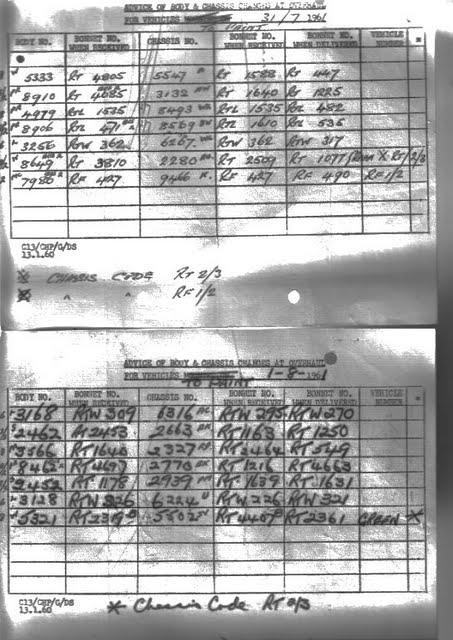 ADVICE OF BODY & CHASSIS CHANGES AT OVERHAUL
FOR VEHICLES 31/7/1961
TO PAINT
BODY NO. BONNET NO. WHEN RECEIVED CHASSIS NO. BONNET NO. WHEN RECEIVED BONNET NO. WHEN DELIVERED VEHICLE NUMBER
5333 RT 4805 5547 RT 1588 RT 447
8910 RT 4685 3132 RT 1640 RT 1225
4979 RTL 1535 8493 RTL 1535 RTL 482
8906 RTL 471 8569 RTL 1610 RTL 535
3256 RTW 362 6267 RTW 362 RTW 317
8649 RT 3810 2280 RT 2509 RT 1077 X RT/2/3
7980 RF 427 9466 RF 427 RF 490 RF 1/2
C13/CHP/G/DS
13.1.60
CHASSIS CODE RT 2/3
" " RF 1/2
ADVICE OF BODY & CHASSIS CHANGES AT OVERHAUL
FOR VEHICLES 1-8-1961
TO PAINT
BODY NO. BONNET NO. WHEN RECEIVED CHASSIS NO. BONNET NO. WHEN RECEIVED BONNET NO. WHEN DELIVERED VEHICLE NUMBER
3168 RTW 309 6316 RTW 295 RTW 270
2462 RT 2453 2663 RT 1163 RT 1250
3566 RT 1640 2327 RT 2464 RT 549
8462 RT 4697 2770 RT 1216 RT 4663
2452 RT 1178 2939 RT 1639 RT 1631
3128 RTW 326 6224 RTW 226 RTW 321
5321 RT 2319 5502 RT 4407 RT 2361 GREEN *
C13/CHP/G/DS
13.1.60
* Chassis Code RT 2/3